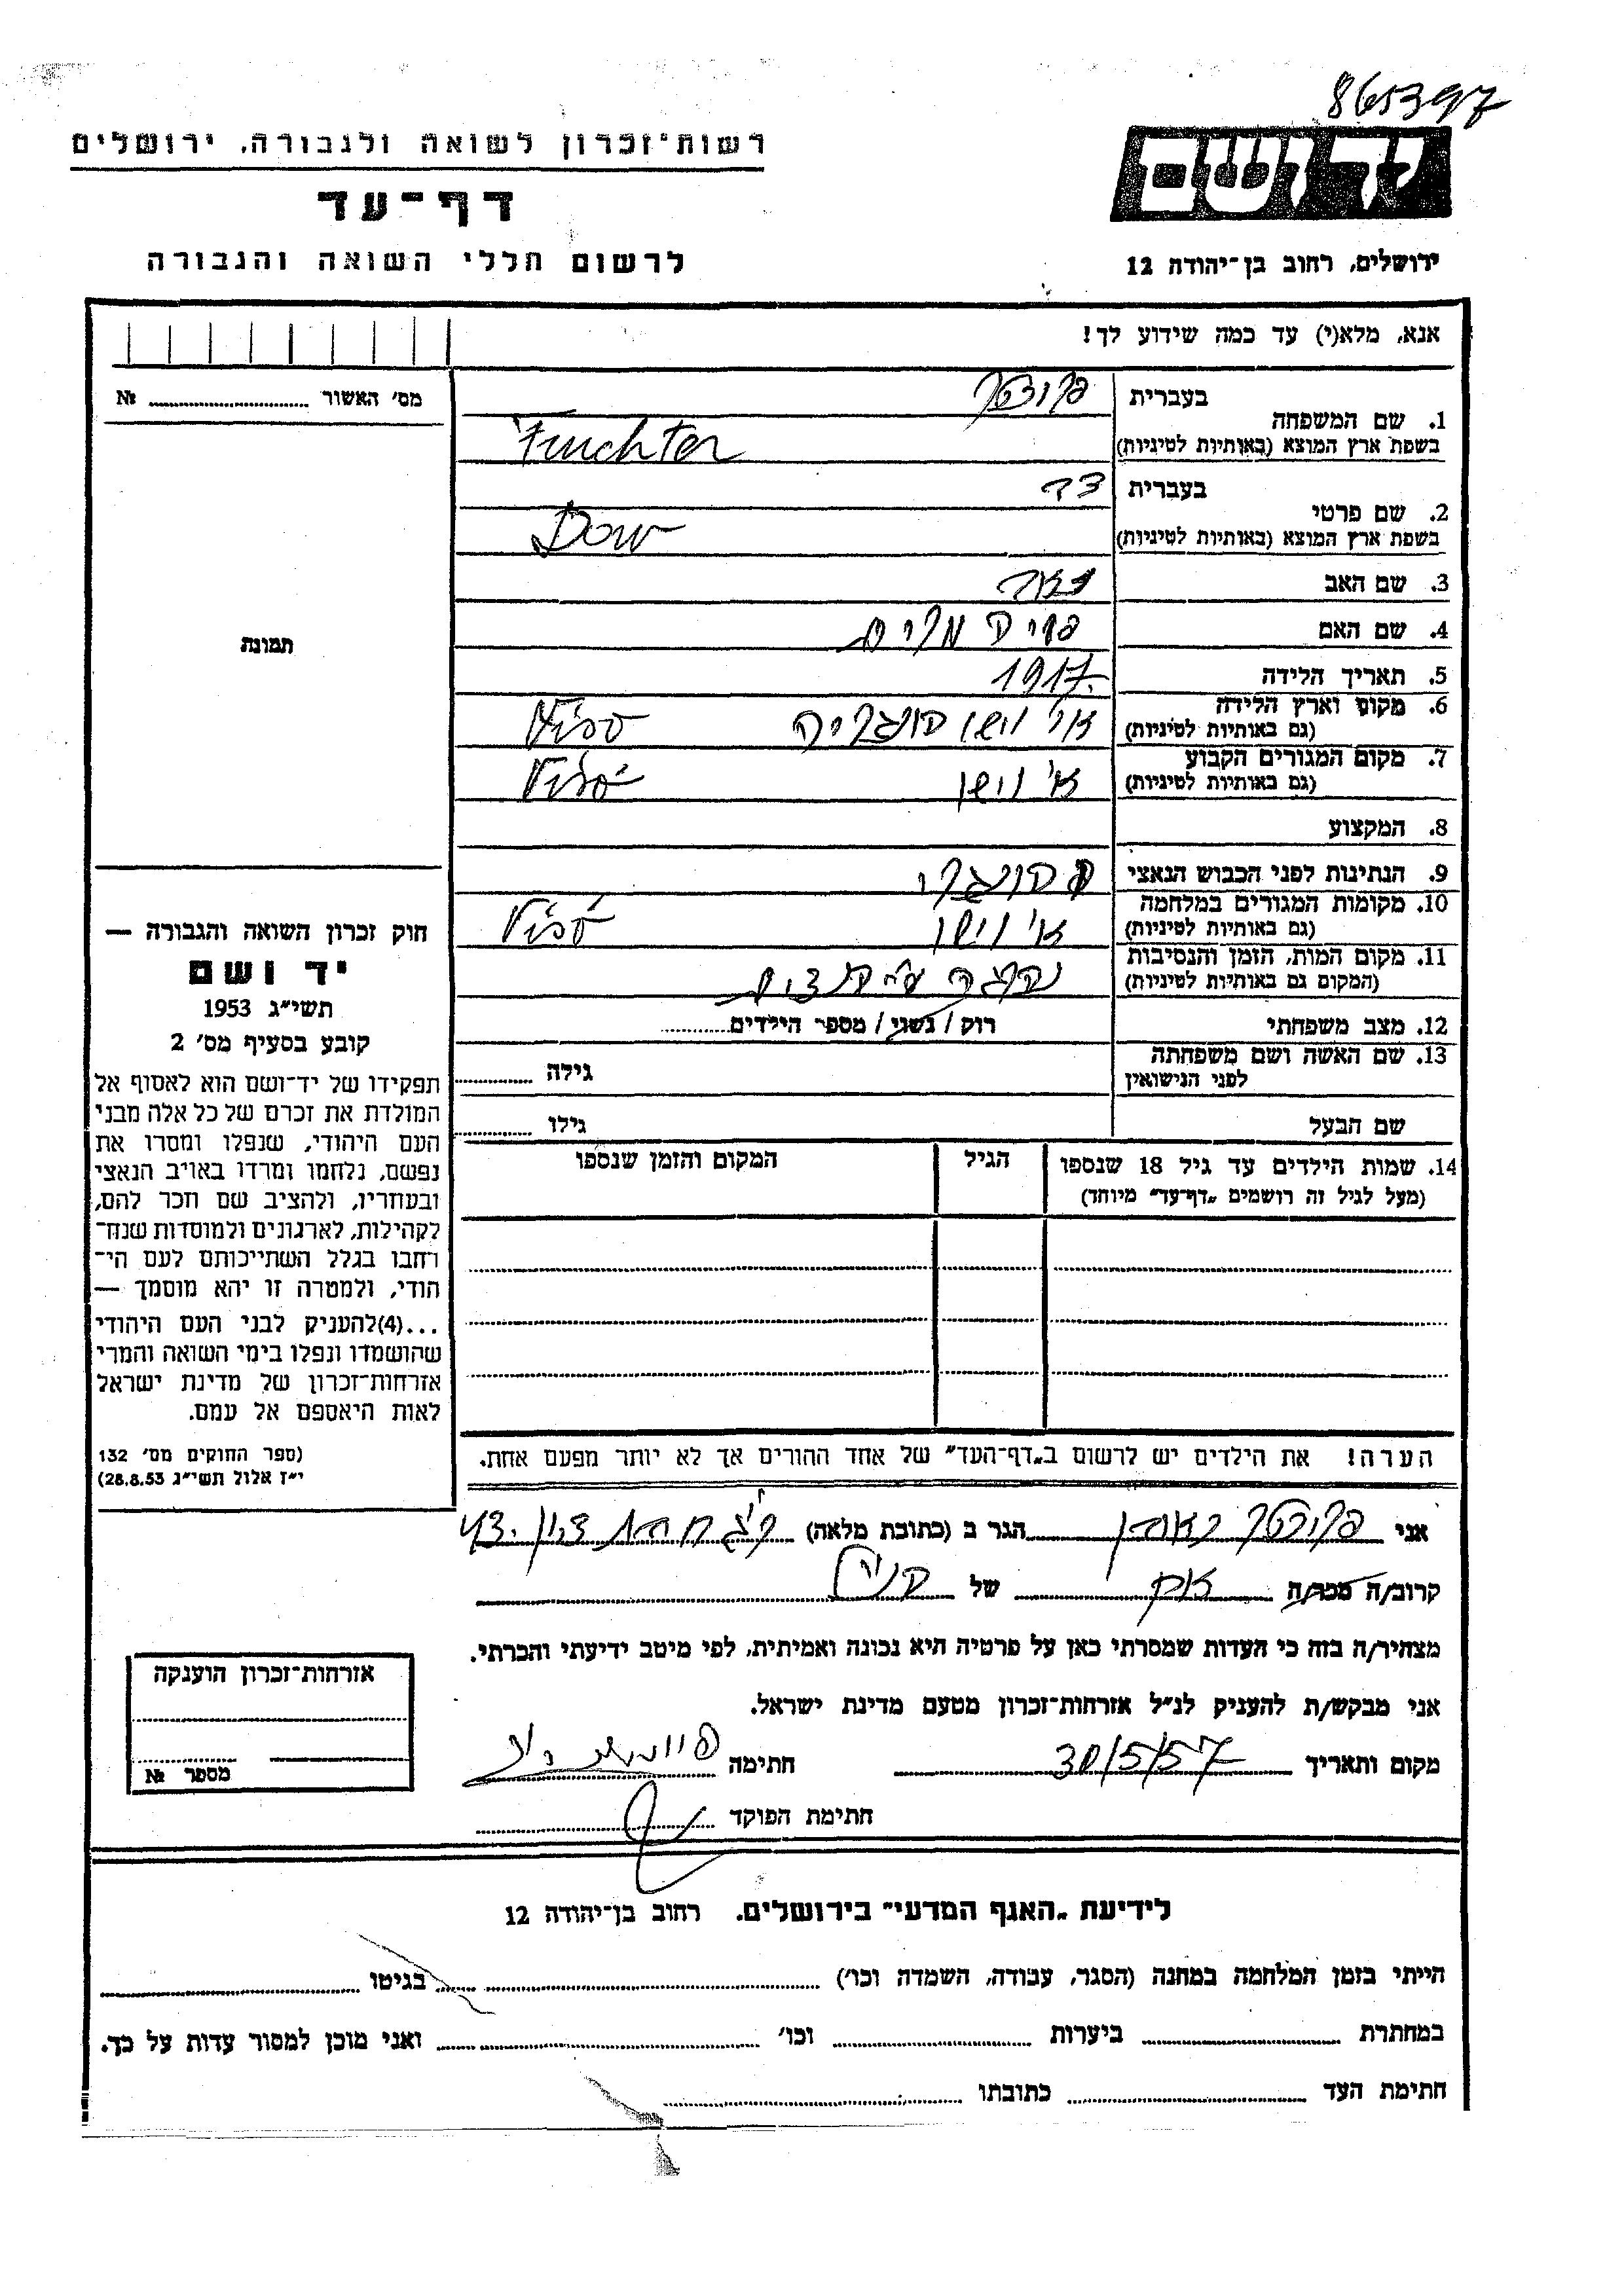 865397
רשות־זכרון לשואה ולגבורה, ירושלים
דף־עד
לרשום חללי השואה והגבורה
יד ושם
ירושלים, רחוב בן־יהודה 12
אנא, מלא(י) עד כמה שידוע לך!
מס׳ האשור № 
תמונה
1. שם המשפחה
בעברית
בשפת ארץ המוצא (באותיות לטיניות) Fruchter
2. שם פרטי
בעברית דב
בשפת ארץ המוצא (באותיות לטיניות) Dow
3. שם האב
4. שם האם מרים
5. תאריך הלידה 1917
6. מקום וארץ הלידה
(גם באותיות לטיניות)
7. מקום המגורים הקבוע
(גם באותיות לטיניות)
8. המקצוע
9. הנתינות לפני הכבוש הנאצי הונגרי
10. מקומות המגורים במלחמה
(גם באותיות לטיניות)
11. מקום המות, הזמן והנסיבות
(המקום גם באותיות לטיניות)
12. מצב משפחתי רוק / נשוי / מספר הילדים
13. שם האשה ושם משפחתה
לפני הנישואין גילה
שם הבעל גילו
14. שמות הילדים עד גיל 18 שנספו
(מעל לגיל זה רושמים „דף־עד״ מיוחד)
הגיל
המקום והזמן שנספו
הערה! את הילדים יש לרשום ב„דף־העד״ של אחד ההורים אך לא יותר מפעם אחת.
חוק זכרון השואה והגבורה —
יד ושם
תשי״ג 1953
קובע בסעיף מס׳ 2
תפקידו של יד־ושם הוא לאסוף אל
המולדת את זכרם של כל אלה מבני
העם היהודי, שנפלו ומסרו את
נפשם, נלחמו ומרדו באויב הנאצי
ובעוזריו, ולהציב שם וזכר להם,
לקהילות, לארגונים ולמוסדות שנח־
רחבו בגלל השתייכותם לעם הי־
הודי, ולמטרה זו יהא מוסמך —
...(4)להעניק לבני העם היהודי
שהושמדו ונפלו בימי השואה והמרי
אזרחות־זכרון של מדינת ישראל
לאות היאספם אל עמם.
(ספר החוקים מס׳ 132
י״ז אלול תשי״ג 28.8.53)
אני הגר ב (כתובת מלאה)
קרוב/ה מכר/ה אח של
מצהיר/ה בזה כי העדות שמסרתי כאן על פרטיה היא נכונה ואמיתית, לפי מיטב ידיעתי והכרתי.
אני מבקש/ת להעניק לנ״ל אזרחות־זכרון מטעם מדינת ישראל.
מקום ותאריך 30/5/57 חתימה
חתימת הפוקד
אזרחות־זכרון הוענקה
מספר №
לידיעת „האגף המדעי״ בירושלים. רחוב בן־יהודה 12
הייתי בזמן המלחמה במחנה (הסגר, עבודה, השמדה וכו׳) בגיטו
במחתרת ביערות וכו׳ ואני מוכן למסור עדות על כך.
חתימת העד כתובתו